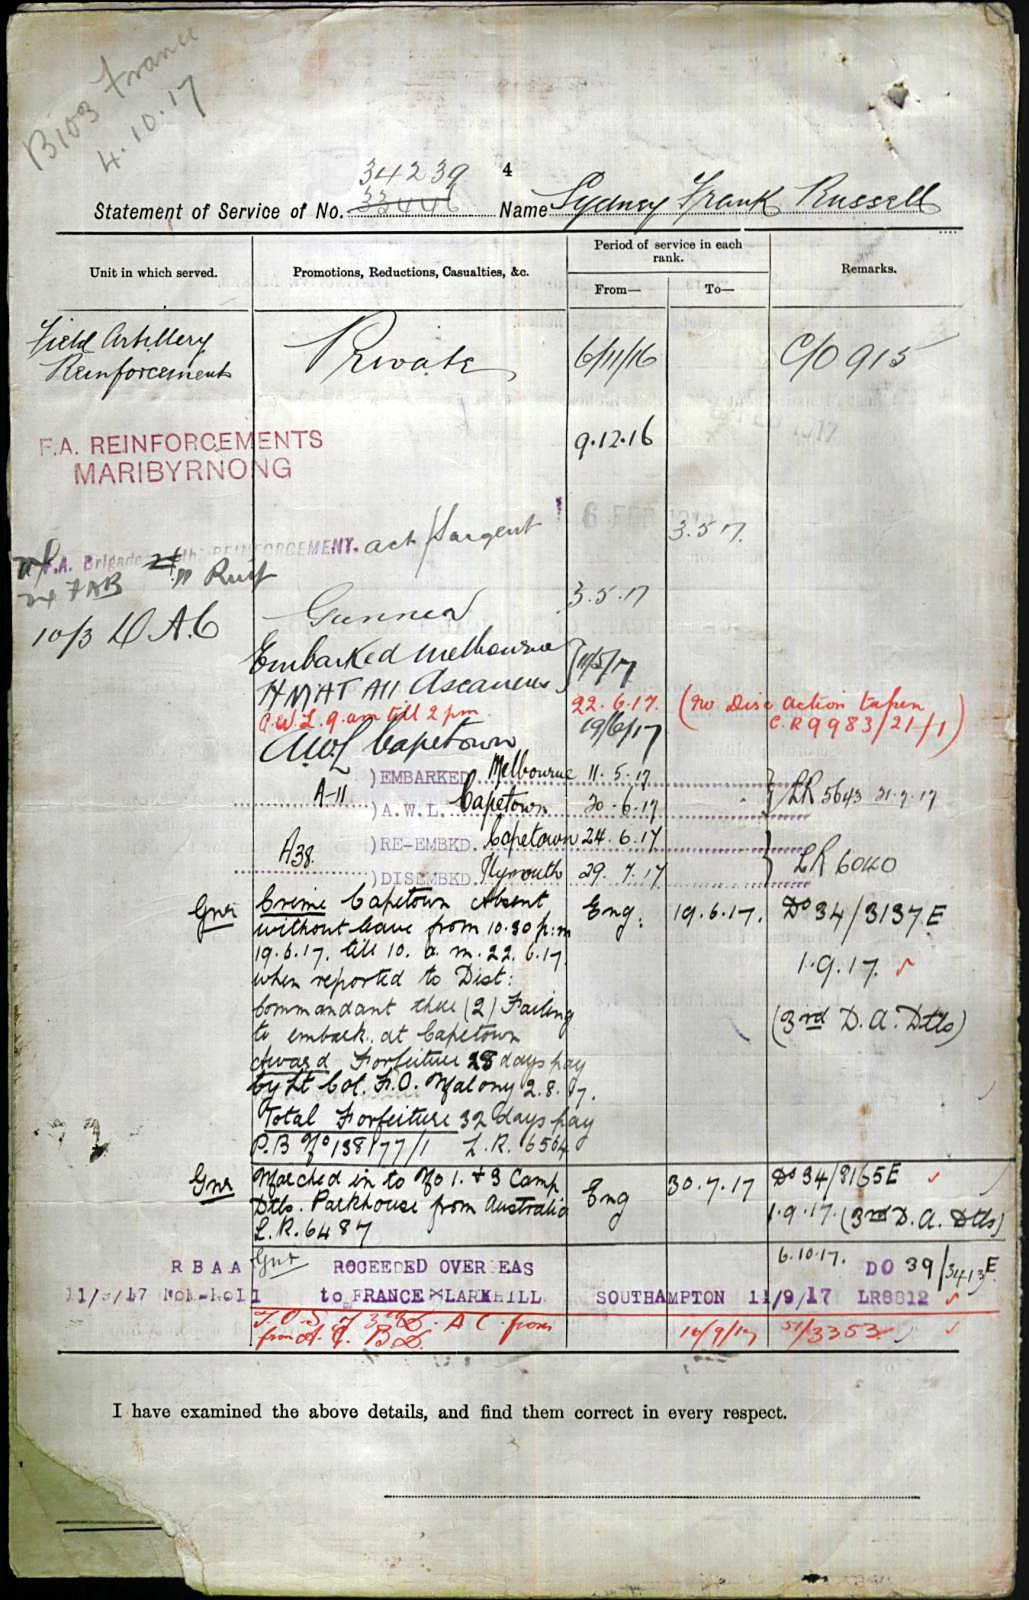 B103 France
4.10.17
34239
4
Statement of Service of No. 33446 Name Sydney Frank Russell
Unit in which served.
Promotions, Reductions, Casualties, &c.
Period of service in each
rank.
From—
To—
Remarks.
Field Artillery
Reinforcements
Private
6/11/16
C/O 915
F.A. REINFORCEMENTS
MARIBYRNONG
9.12.16
F.A. Brigade REINFORCEMENT. act/Sargent
6 FEB
3.5.17.
FAB
" Reinf
10/3 D A.C
Gunner
3.5.17
Embarked Melbourne
11/5/17
HMAT A11 Ascanius
A.W.L. 9 am till 2 pm
22.6.17.
(no Disc action taken
C.R 9983/21/1)
AWL Capetown
19/6/17
A-11
)EMBARKED Melbourne 11.5.17
)A.W.L. Capetown 20.6.17
LR 5643 21.7.17
A38
)RE-EMBKD. Capetown 24.6.17
)DISEMBKD. Plymouth 29.7.17
LR 6040
Gnr
Crime Capetown Absent
without leave from 10.30 p.m
19.6.17. till 10. a.m. 22.6.17.
when reported to Dist:
Commandant there (2) Failing
to embark at Capetown
Award Forfeiture 28 days pay
by Lt Col. F.O. Malony 2.8.17.
Total Forfeiture 32 days pay
P.B No 138177/1 L.R. 6564
Eng.
19.6.17.
Do 34/3137E
1.9.17.
(3rd D.A. Dtls)
Gnr
Marched in to No 1. & 3 Camp
Dtls. Parkhouse from Australia
L.R. 6487
Eng
30.7.17
Do 34/3165E
1.9.17. (3rd D.A. Dtls)
RBAA
Gnr
ROCEEDED OVERSEAS
6.10.17. DO 39/3413E
11/9/17 Nom-Roll
to FRANCE LARKHILL
SOUTHAMPTON 11/9/17 LR8812
T.O.S of 3rd D.A.C. from
from A.G.B.D.
16/9/17
51/3353
I have examined the above details, and find them correct in every respect.